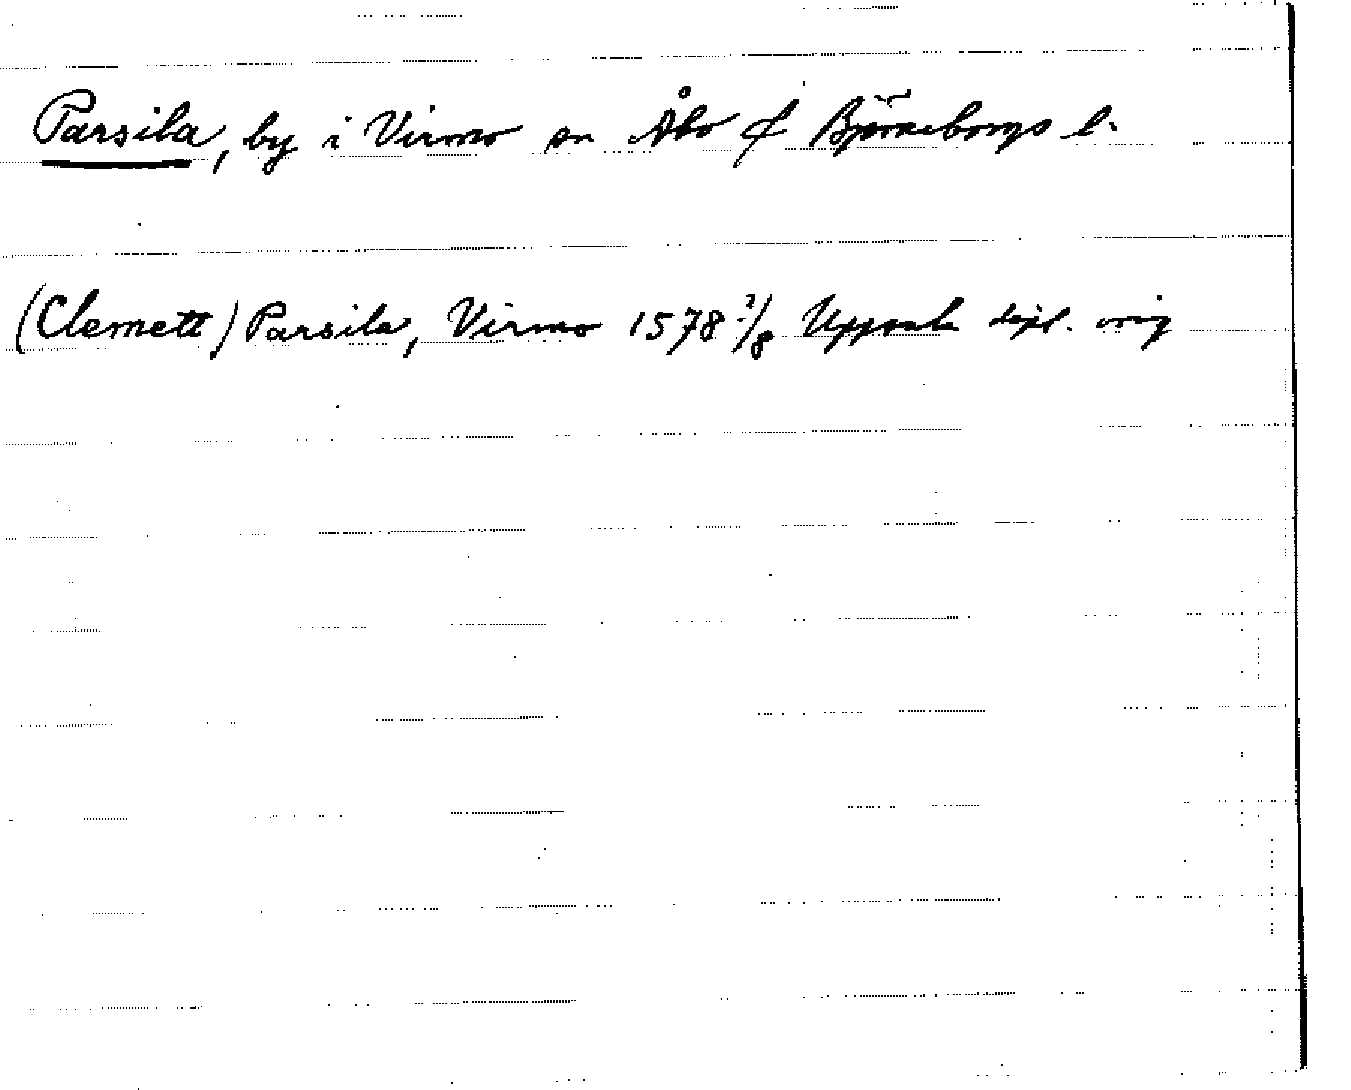 Parsila, by i Virmo sn Åbo o Björneborgs l.
(Clemett) Parsila, Virmo 1578 ?/8 Uppsala dipl. orig